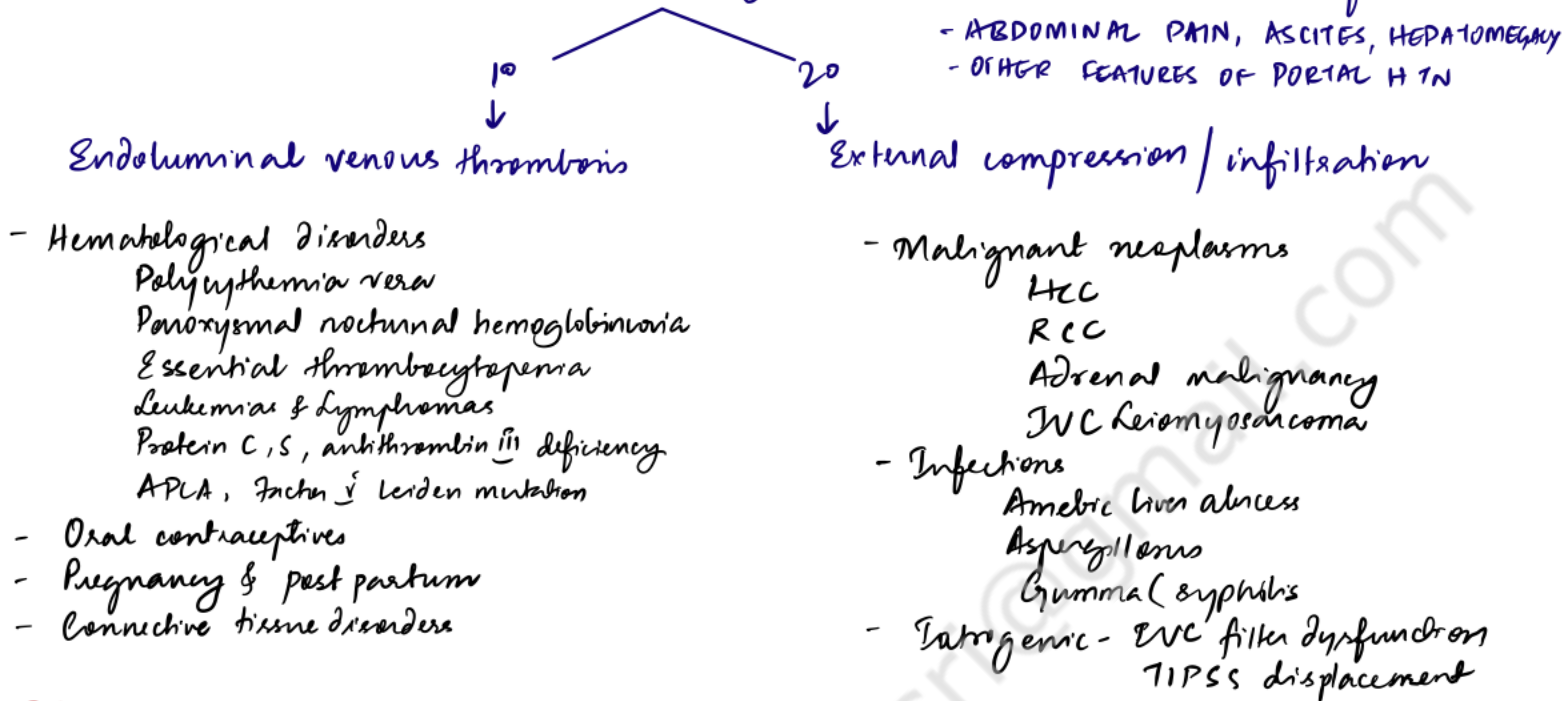 - ABDOMINAL PAIN, ASCITES, HEPATOMEGALY
- OTHER FEATURES OF PORTAL HTN
1° 2°
↓ ↓
Endoluminal venous thrombosis
External compression / infiltration
- Hematological disorders
Polycythemia vera
Paroxysmal nocturnal hemoglobinuria
Essential thrombocytopenia
Leukemias & Lymphomas
Protein C, S, antithrombin iii deficiency
APLA, Factor v Leiden mutation
- Oral contraceptives
- Pregnancy & post partum
- Connective tissue disorders
- Malignant neoplasms
HCC
RCC
Adrenal malignancy
IVC Leiomyosarcoma
- Infections
Amebic liver abscess
Aspergillosus
Gumma ( syphilis
- Iatrogenic - IVC filter dysfunction
TIPSS displacement
sri@gmail.com